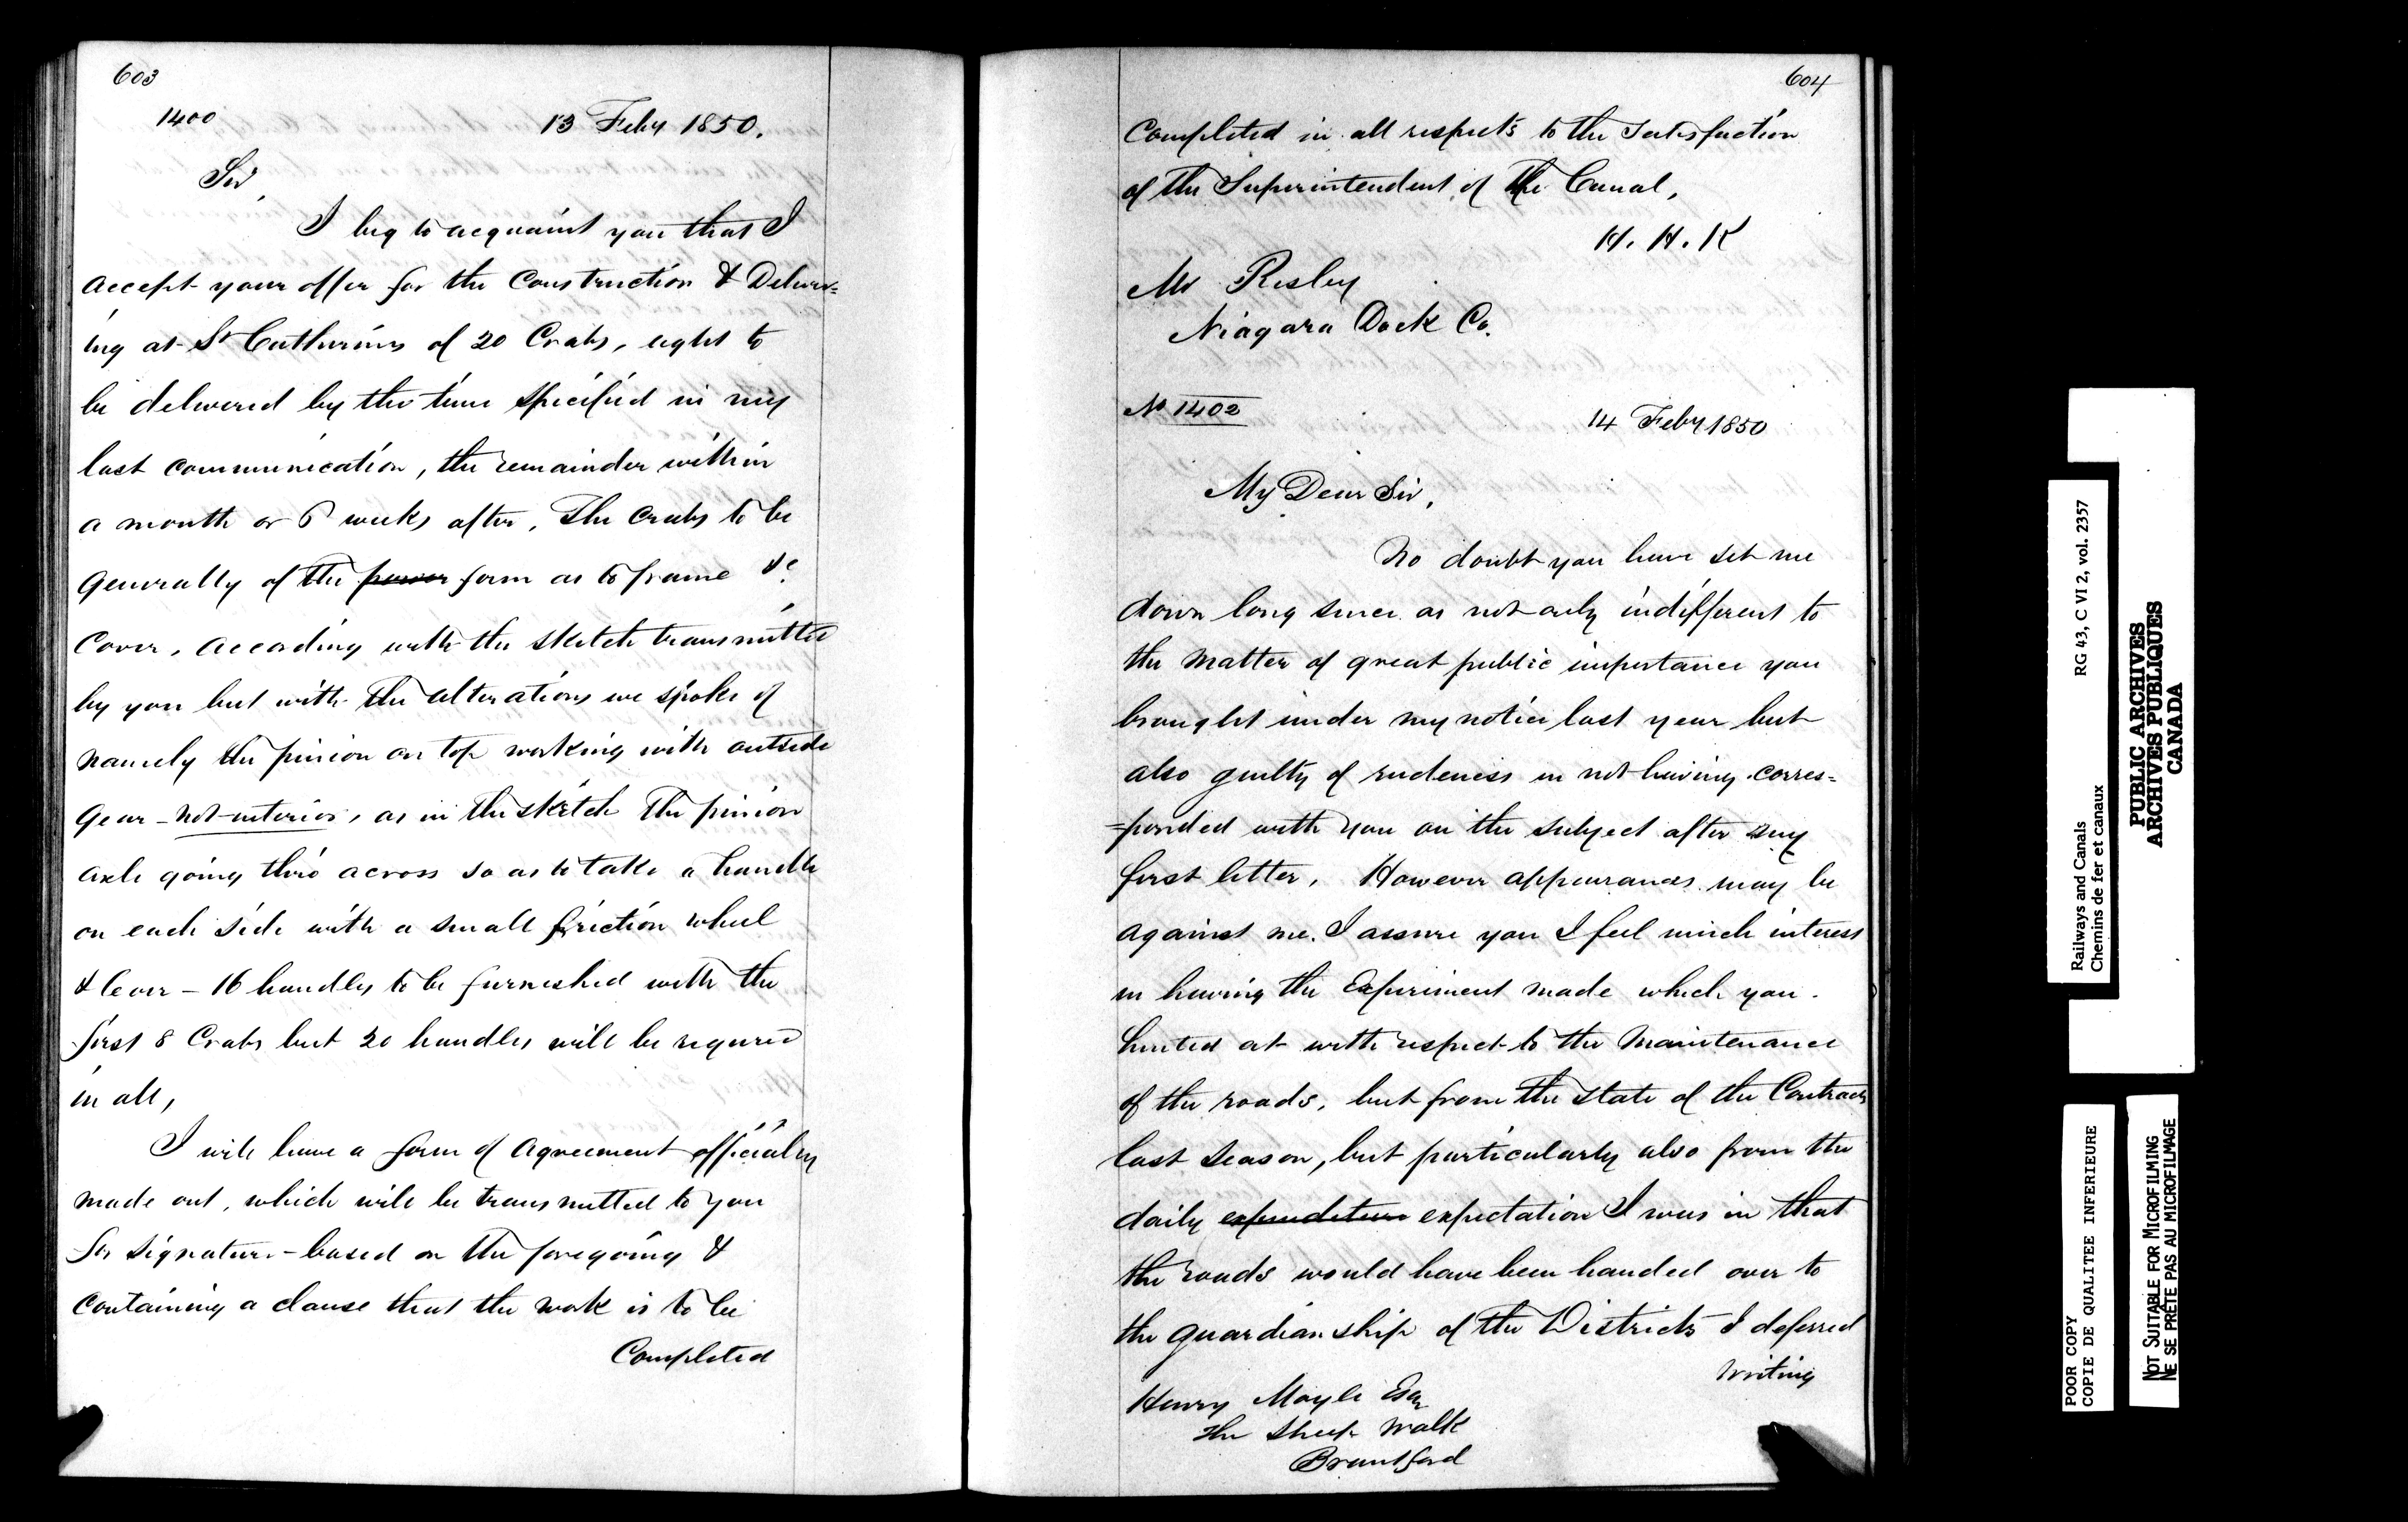 603
1400
13 Feby 1850.
Sir,
I beg to acquaint you that I
accept your offer for the Construction & Deliver=
ing at St Catharines of 20 Crabs, eight to
be delivered by the time specified in my
last communication, the remainder within
a month or 6 weeks after, The Crabs to be
generally of the power form as to frame &c.
Cover, according with the sketch transmitted
by you but with the alterations we spoke of
namely the pinion on top working with outside
Gear - not interior, as in the sketch The pinion
axle going thro' across so as to take a handle
on each side with a small friction wheel
& lever - 16 handles to be furnished with the
first 8 Crabs but 20 handles will be required
in all,
I will have a form of Agreement officially
made out, which will be transmitted to you
for signature - based on the foregoing &
Containing a clause that the work is to be
Completed
604
Completed in all respects to the Satisfaction
of the Superintendent of the Canal,
H. H. K
Mr Risley
Niagara Dock Co.
No 1402
14 Feby 1850
My Dear Sir,
No doubt you have set me
down long since as not only indifferent to
the matter of great public importance you
brought under my notice last year but
also guilty of rudeness in not having corres=
=ponded with you on the subject after my
first letter, However appearances may be
against me. I assure you I feel much interest
in having the Experiment made which you
hinted at with respect to the Maintenance
of the roads, but from the state of the Contracts
last season, but particularly also from the
daily expenditure expectation I was in that
the roads would have been handed over to
the guardianship of the Districts I deferred
writing
Henry Moyle Esqr
The Sheep Walk
Brantford
Railways and Canals
Chemins de fer et canaux
RG 43, C VI 2, vol. 2357
PUBLIC ARCHIVES
ARCHIVES PUBLIQUES
CANADA
POOR COPY
COPIE DE QUALITEE INFERIEURE
NOT SUITABLE FOR MICROFILMING
NE SE PRÊTE PAS AU MICROFILMAGE